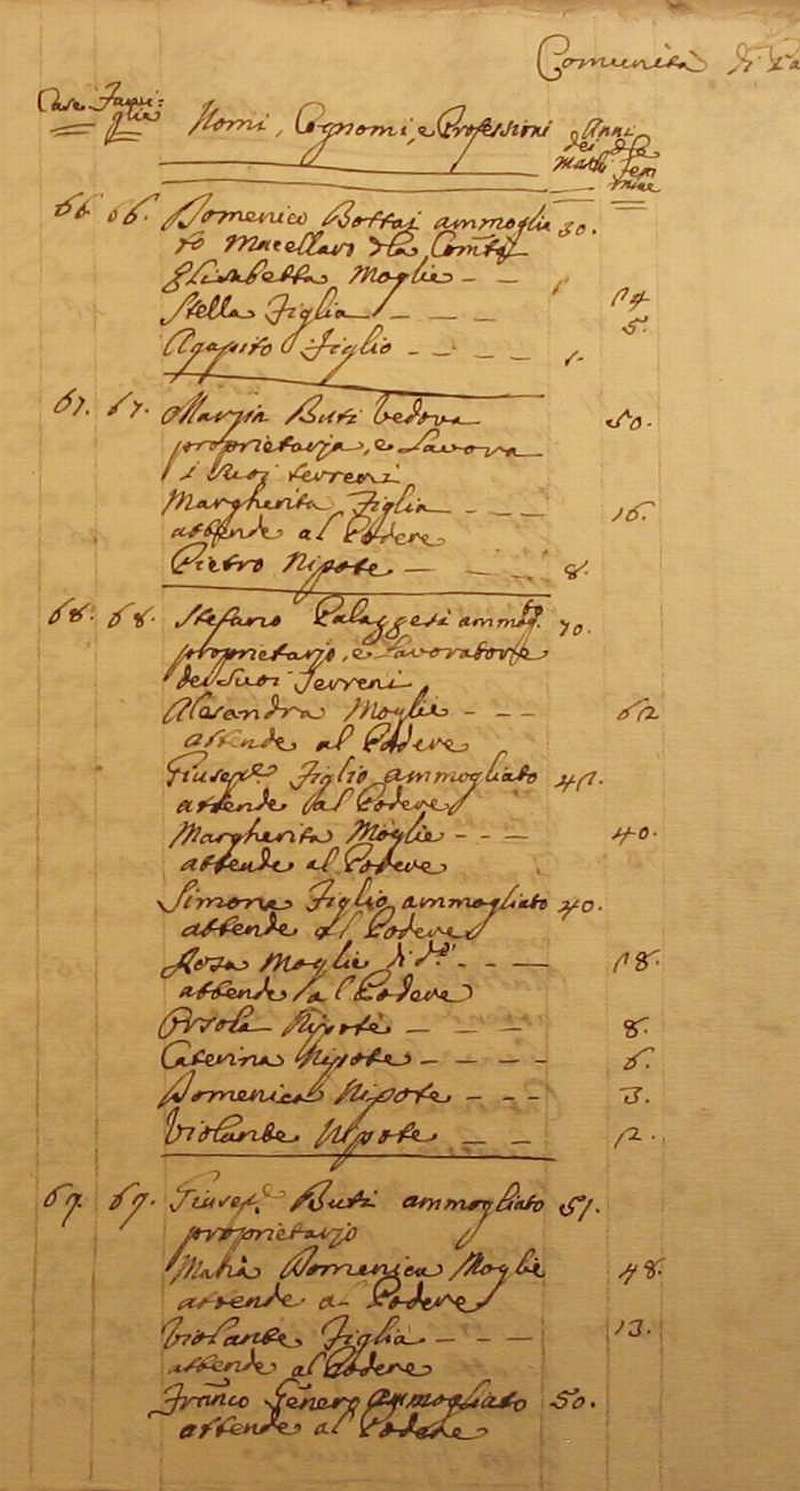 Comunità di
Case. Fami:
glie
Nomi, Cognomi, e Professioni
Anni
dei
Maschi
Fem
mine
66. 66. Domenico Bottai ammoglia 30.
to Macellaro
Elisabetta Moglie - -
Stella Figlia - - -
5.
Agapito Figlio - - - - 1.
67. 67. Maria Buti Vedova 50.
proprietaria, e Lavora
i suoi terreni
Margherita Figlia - - - 16.
attende al Podere
Pietro Nipote - - - 8.
68. 68. Stefano Palaggesi ammog. 70.
proprietario, e Lavoratore
dei suoi Terreni
Alesandra Moglie - - - 62
attende al Podere
Giusep.e Figlio ammogliato
attende al Podere
Margherita Moglie - - - 40.
attende al Podere
Simone Figlio ammogliato 40.
attende al Podere
Rosa Moglie di d.o - - - 18.
attende al Podere
Orsola Nipote - - - 8.
Caterina Nipote - - - - 6.
Domenica Nipote - - - 3.
Violante Nipote - - 12.
69. 69. Giusep.e Buti ammogliato 51.
proprietario
Maria Domenica Moglie 48.
attende al Podere
Violante Figlia - - - 13.
attende al Podere
Franco Genero ammogliato 50.
attende al Podere